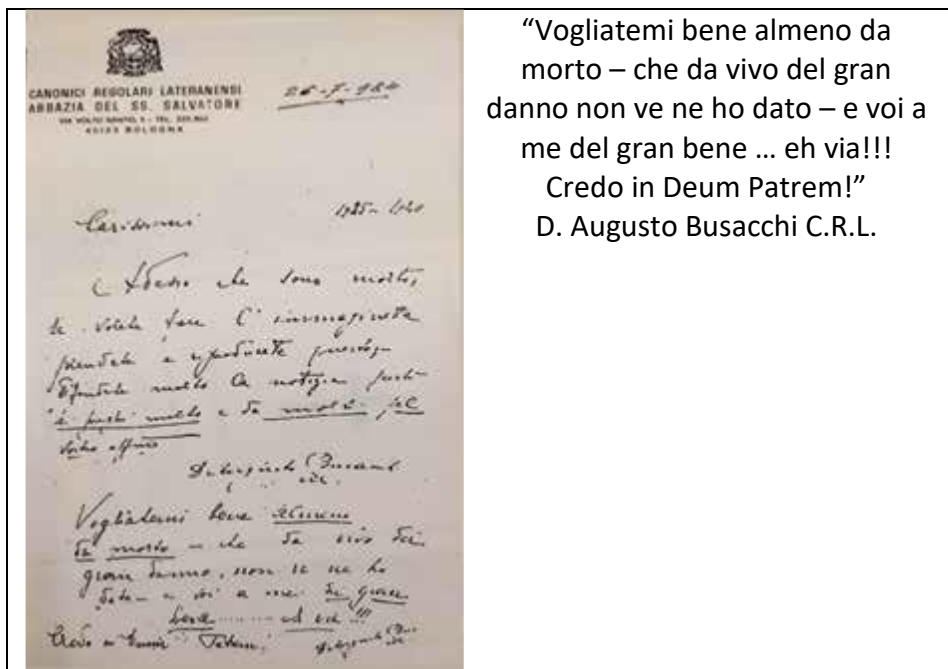 CANONICI REGOLARI LATERANENSI
ABBAZIA DEL SS. SALVATORE
VIA VOLTO SANTO, 1 - TEL.
BOLOGNA
Carissimi
Adesso che sono morto,
se volete fare l'immaginetta
prendete e riproducete
molto la notizia
molto e da molti
D. Augusto Busacchi
Vogliatemi bene almeno
da morto – che da vivo del
gran danno, non ve ne ho
dato – e voi a me del gran
bene ........ eh via!!!
Credo in Deum Patrem!
"Vogliatemi bene almeno da
morto – che da vivo del gran
danno non ve ne ho dato – e voi a
me del gran bene … eh via!!!
Credo in Deum Patrem!"
D. Augusto Busacchi C.R.L.